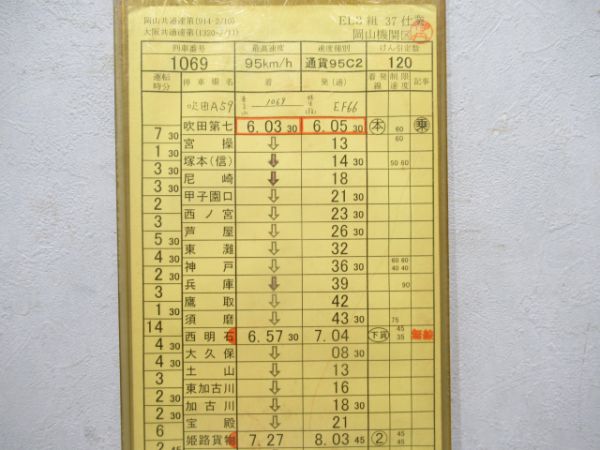 岡山共通達第(914-2/10)
大阪共通達第(1320-2/11)
EL3 組 37 仕業
岡山機関区
列車番号 最高速度 速度種別 けん引定数
1069 95km/h 通貨95C2 120
運転時分 停車場名 着 発(通) 着発線 制限速度 記事
吹田A59 1069 EF66
吹田第七 6.03 30 6.05 30 本 60 乗
7 30 宮操 ⇩ 13 60
1 30 塚本(信) ⇩ 14 30 50 60
3 30 尼崎 ⇩ 18
3 30 甲子園口 ⇩ 21 30
2 西ノ宮 ⇩ 23 30
3 芦屋 ⇩ 26 30
5 30 東灘 ⇩ 32
4 30 神戸 ⇩ 36 30 60 60 40 40
2 30 兵庫 ⇩ 39 90
3 鷹取 ⇩ 42
1 30 須磨 ⇩ 43 30 75
14 西明石 6.57 30 7.04 下貨 45 35 無線
4 30 大久保 ⇩ 08 30
4 30 土山 ⇩ 13
3 東加古川 ⇩ 16
2 30 加古川 ⇩ 18 30
2 30 宝殿 ⇩ 21
6 姫路貨物 7.27 8.03 45 2 45 45